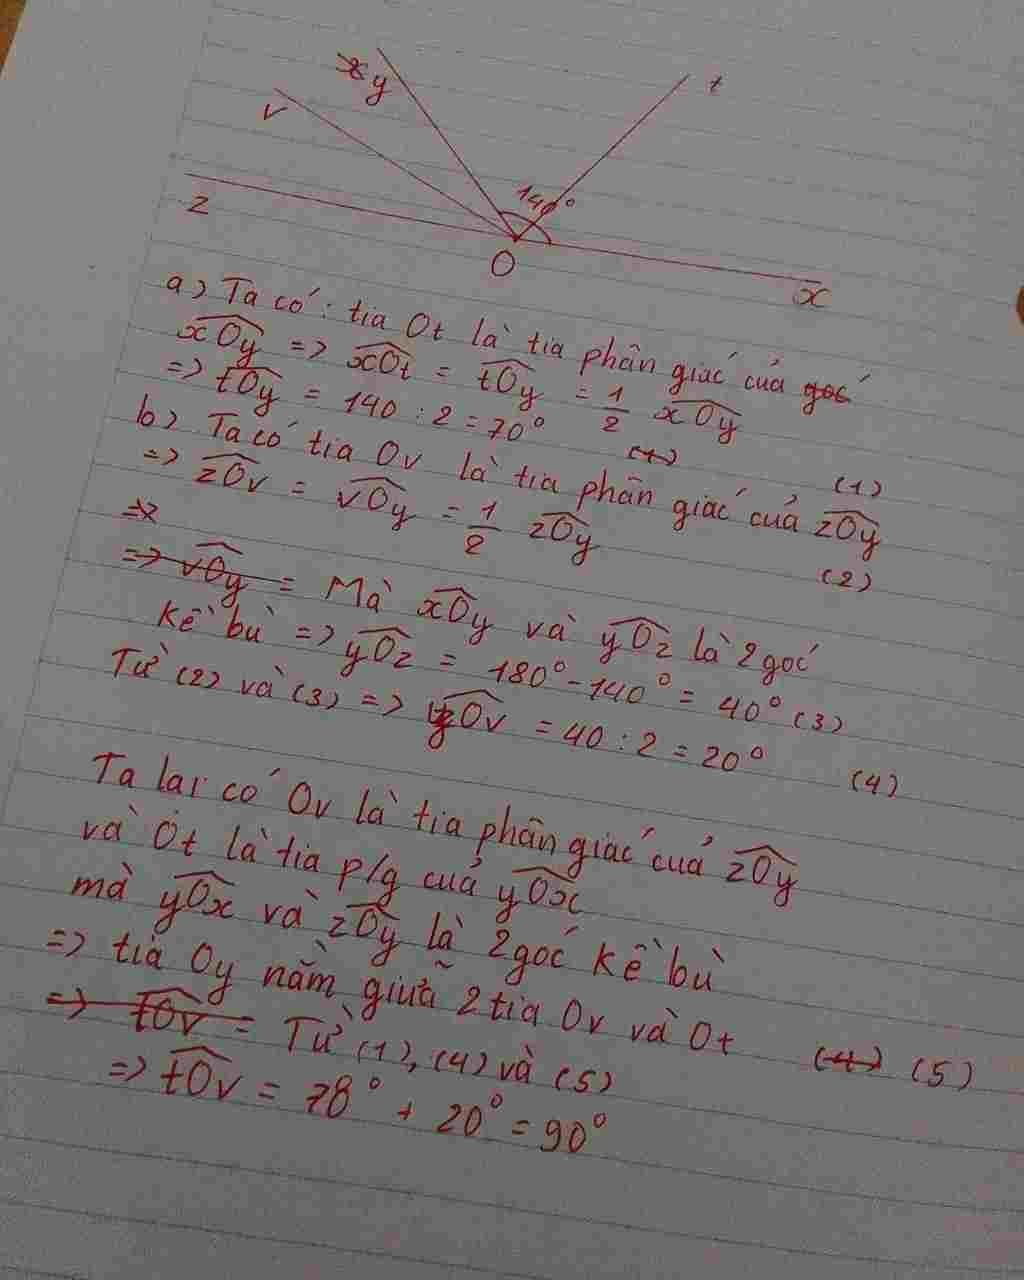 x y
t
v
140°
z
O
x
a) Ta có: tia Ot là tia phân giác của góc
xOy => xOt = tOy = 1/2 xOy
=> tOy = 140 : 2 = 70° (1) (1)
b) Ta có tia Ov là tia phân giác của zOy
=> zOv = vOy = 1/2 zOy (2)
=>
=> vOy = Mà xOy và yOz là 2 góc
kề bù => yOz = 180° - 140° = 40° (3)
Từ (2) và (3) => yOv = 40 : 2 = 20° (4)
Ta lại có Ov là tia phân giác của zOy
và Ot là tia p/g của yOx
mà yOx và zOy là 2 góc kề bù
=> tia Oy nằm giữa 2 tia Ov và Ot (4) (5)
=> tOv = Từ (1), (4) và (5)
=> tOv = 70° + 20° = 90°